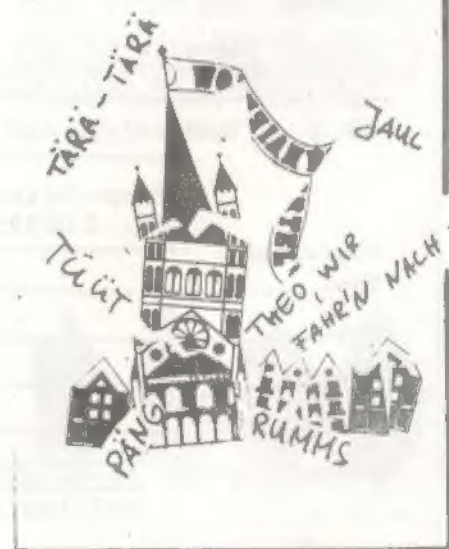 TÄRÄ - TÄRÄ
JAUL
TÜÜT
THEO, WIR
FAHR'N NACH
PÄNG
RUMMS